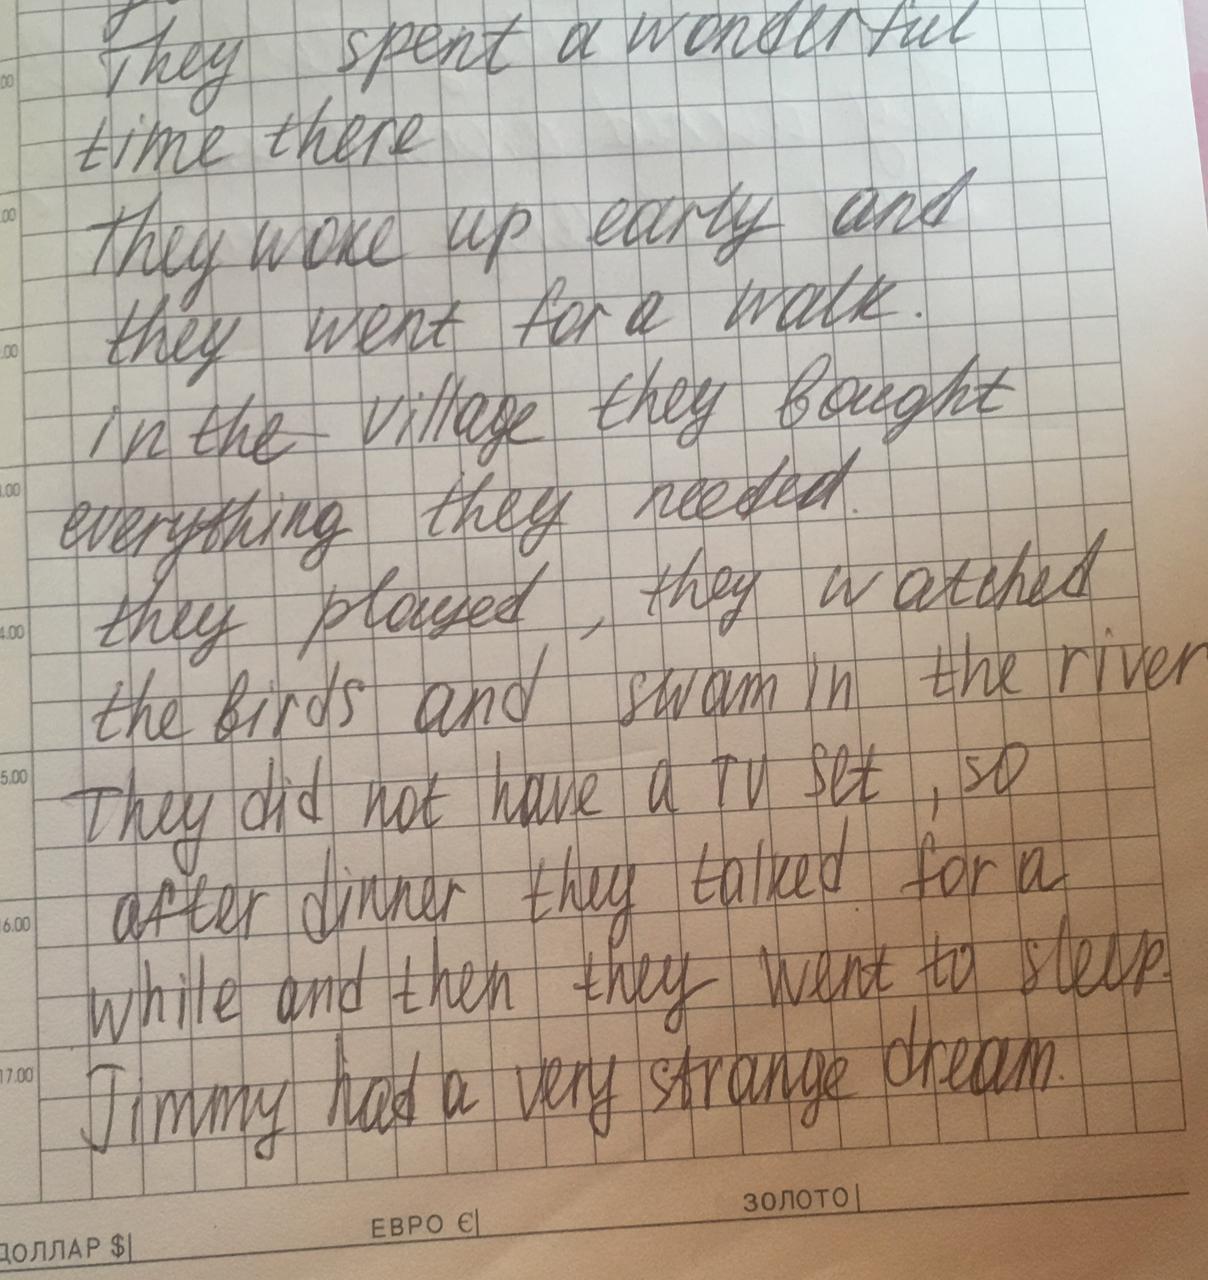 They spent a wonderful
.00
time there
.00
they woke up early and
they went for a walk.
.00
in the village they bought
.00
everything they needed.
4.00
they played, they watched
the birds and swam in the river
5.00
They did not have a TV set, so
after dinner they talked for a
16.00
while and then they went to sleep.
17.00
Jimmy had a very strange dream.
ДОЛЛАР $| ЕВРО €| ЗОЛОТО|